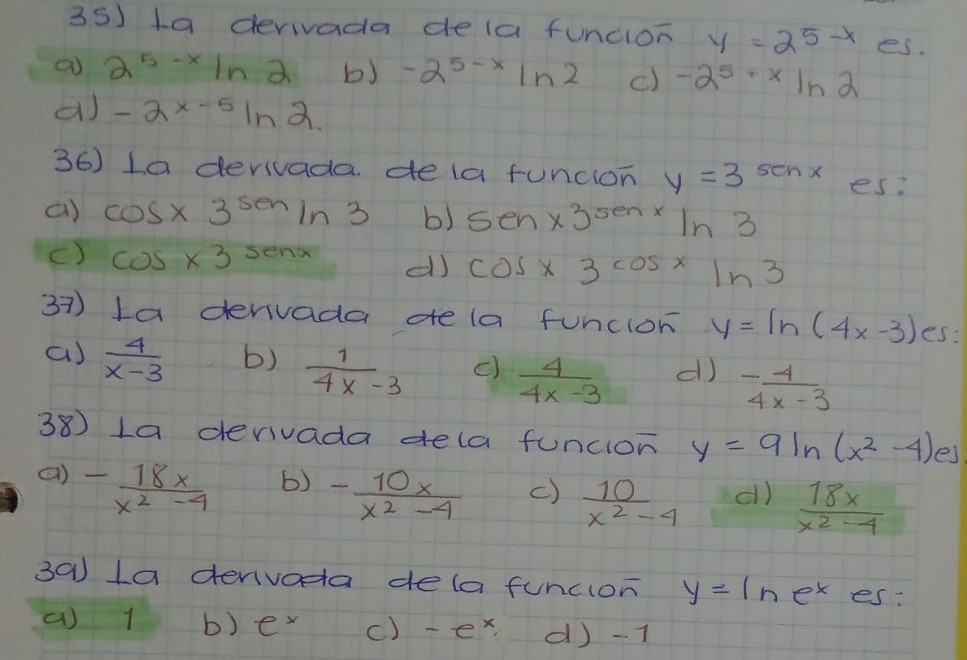 35) La derivada de la función y = 2^5-x es.
a) 2^5-x ln 2 b) -2^5-x ln 2 c) -2^5+x ln 2
d) -2^x-5 ln 2.
36) La derivada de la función y = 3^sen x es:
a) cos x 3^sen ln 3 b) sen x 3^sen x ln 3
c) cos x 3^sen x d) cos x 3^cos x ln 3
37) La derivada de la función y = ln (4x-3) es:
a) 4/x-3 b) 1/4x-3 c) 4/4x-3 d) -4/4x-3
38) La derivada de la función y = 9 ln (x²-4) es
a) - 18x/x²-4 b) - 10x/x²-4 c) 10/x²-4 d) 18x/x²-4
39) La derivada de la función y = ln e^x es:
a) 1 b) e^x c) -e^x. d) -1